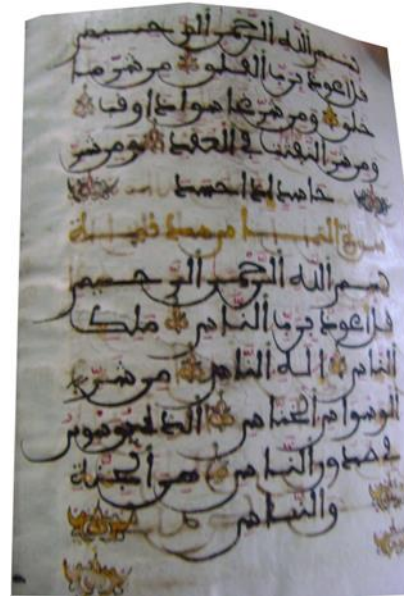 بسم الله الرحمن الرحيم
قل اعوذ برب الفلق من شر ما
خلق ومن شر غاسق اذا وقب
ومن شر النفثت في العقد ومن شر
حاسد اذا حسد
سورة الناس مدنية
بسم الله الرحمن الرحيم
قل اعوذ برب الناس ملك
الناس اله الناس من شر
الوسواس الخناس الذي يوسوس
في صدور الناس من الجنة
والناس